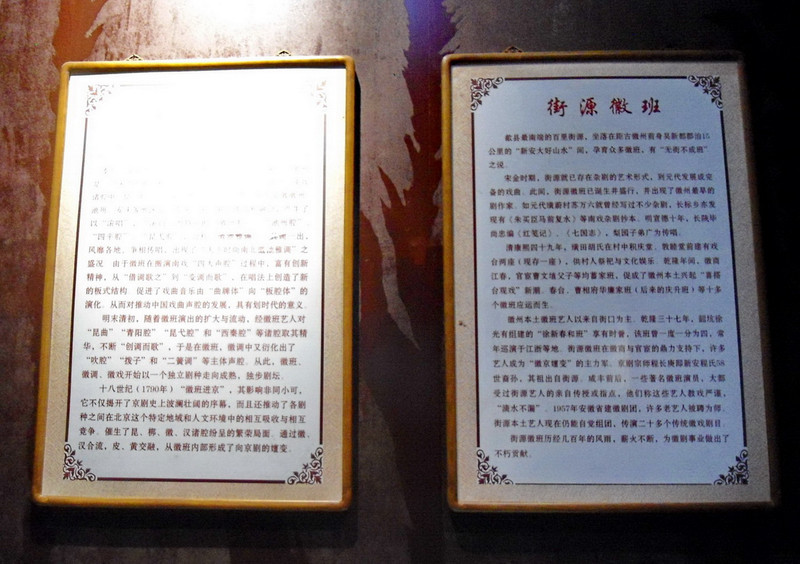 以"滚唱"
"四平腔"
风靡各地，争相传唱，
盛况 由于徽班在搬演南戏"四大声腔"过程中，富有创新
精神，从"借调歌之"到"变调而歌"，在唱法上创造了新
的板式结构 促进了戏曲音乐由"曲牌体"向"板腔体"的
演化。从而对推动中国戏曲声腔的发展，具有划时代的意义。
明末清初，随着徽班演出的扩大与流动，经徽班艺人对
"昆曲""青阳腔""昆弋腔"和"西秦腔"等诸腔取其精
华，不断"创调而歌"，于是在徽班，徽调中又衍化出了
"吹腔""拨子"和"二簧调"等主体声腔。从此，徽班、
徽调、徽戏开始以一个独立剧种走向成熟，独步剧坛。
十八世纪（1790年）"徽班进京"，其影响非同小可，
它不仅揭开了京剧史上波澜壮阔的序幕，而且还推动了各剧
种之间在北京这个特定地域和人文环境中的相互吸收与相互
竞争。催生了昆、梆、徽、汉诸腔纷呈的繁荣局面。通过徽、
汉合流，皮、黄交融，从徽班内部形成了向京剧的嬗变。
街源徽班
歙县最南端的百里街源，坐落在距古徽州前身吴新都郡治15
公里的"新安大好山水"间，孕育众多徽班，有"无街不成班"
之说。
宋金时期，街源就已存在杂剧的艺术形式，到元代发展成完
备的戏曲。此间，街源徽班已诞生并盛行，并出现了徽州最早的
剧作家。如元代璜蔚村苏万六就曾经写过不少杂剧，长标乡亦发
现有《朱买臣马前复水》等南戏杂剧抄本。明宣德十年，长陔毕
尚忠编《红笺记》、《七国志》，梨园子弟广为传唱。
清康熙四十九年，璜田胡氏在村中积庆堂、敦睦堂前建有戏
台两座（现存一座），供村人祭祀与文化娱乐。乾隆年间，徽商
江春，官宦曹文埴父子等均蓄家班，促成了徽州本土兴起"喜搭
台观戏"新潮。春台、曹相府华廉家班（后来的庆升班）等十多
个徽班应运而生。
徽州本土徽班艺人以来自街口为主。乾隆三十七年，韶坑徐
光有组建的"徐新春和班"享有时誉，该班曾一度一分为四，常
年巡演于江浙等地。街源徽班在徽商与官宦的鼎力支持下，许多
艺人成为"徽京嬗变"的主力军。京剧宗师程长庚即新安程氏58
世裔孙，其祖出自街源。咸丰前后，一些著名徽班演员，大都
受过街源艺人的亲自传授或指点，他们称这些艺人教戏严谨，
"滴水不漏"。1957年安徽省建徽剧团，许多老艺人被聘为师。
街源本土艺人现在仍能自觉组团，传演二十多个传统徽戏剧目。
街源徽班历经几百年的风雨，薪火不断，为徽剧事业做出了
不朽贡献。